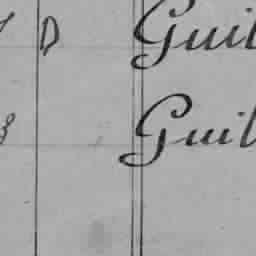 D Guil
8 Guil